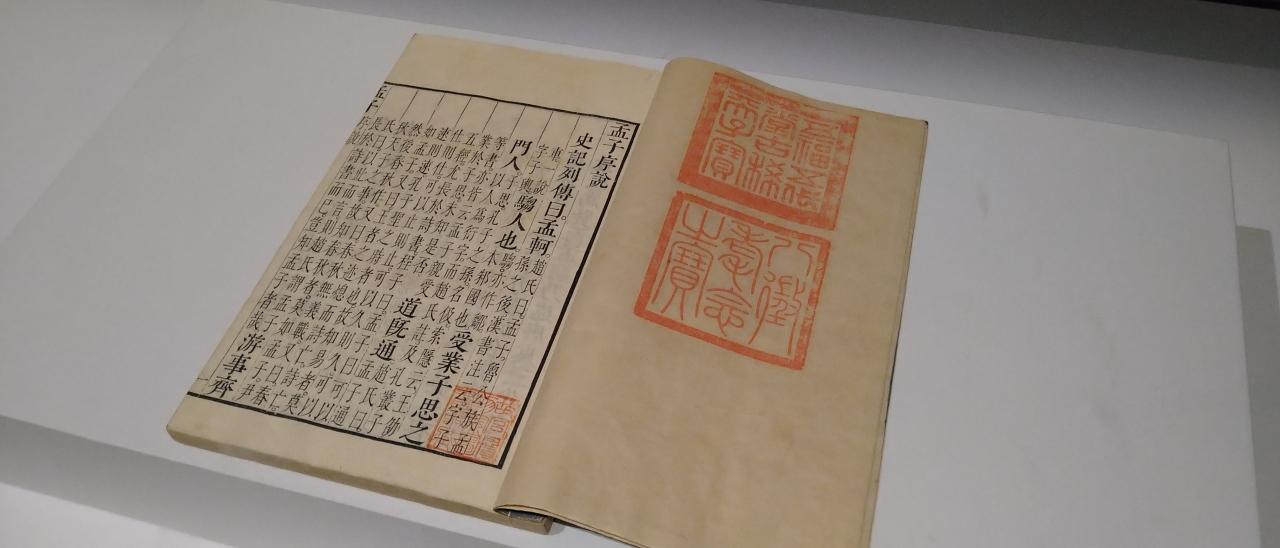 五福五代
堂古稀
天子寶
八徵
耄念
之寶
孟子序說
史記列傳曰。孟軻。趙氏曰。孟子。魯公族孟孫之後。漢書注云。字子
車。一說。字子輿。騶人也。騶亦作鄒。本邾國也。受業子思之
門人。子思。孔子之孫。名伋。索隱云。王劭以人爲衍字。而趙氏註及孔叢子
等書。亦皆云孟子親受業於子思。未知是否。道旣通。趙氏曰。孟子通
五經。尤長於詩書。程子曰。孟子曰。可以仕則仕。可以止則止。可以久則久。可以
速則速。孔子聖之時者也。故知易者。莫如孟子。又曰。王者之迹熄而詩亡。詩亡
然後春秋作。又曰。春秋無義戰。又曰。春秋天子之事。故知春秋者。莫如孟子。尹
氏曰。以此而言。則趙氏謂孟子長於詩書而已。豈知孟子者哉。游事齊